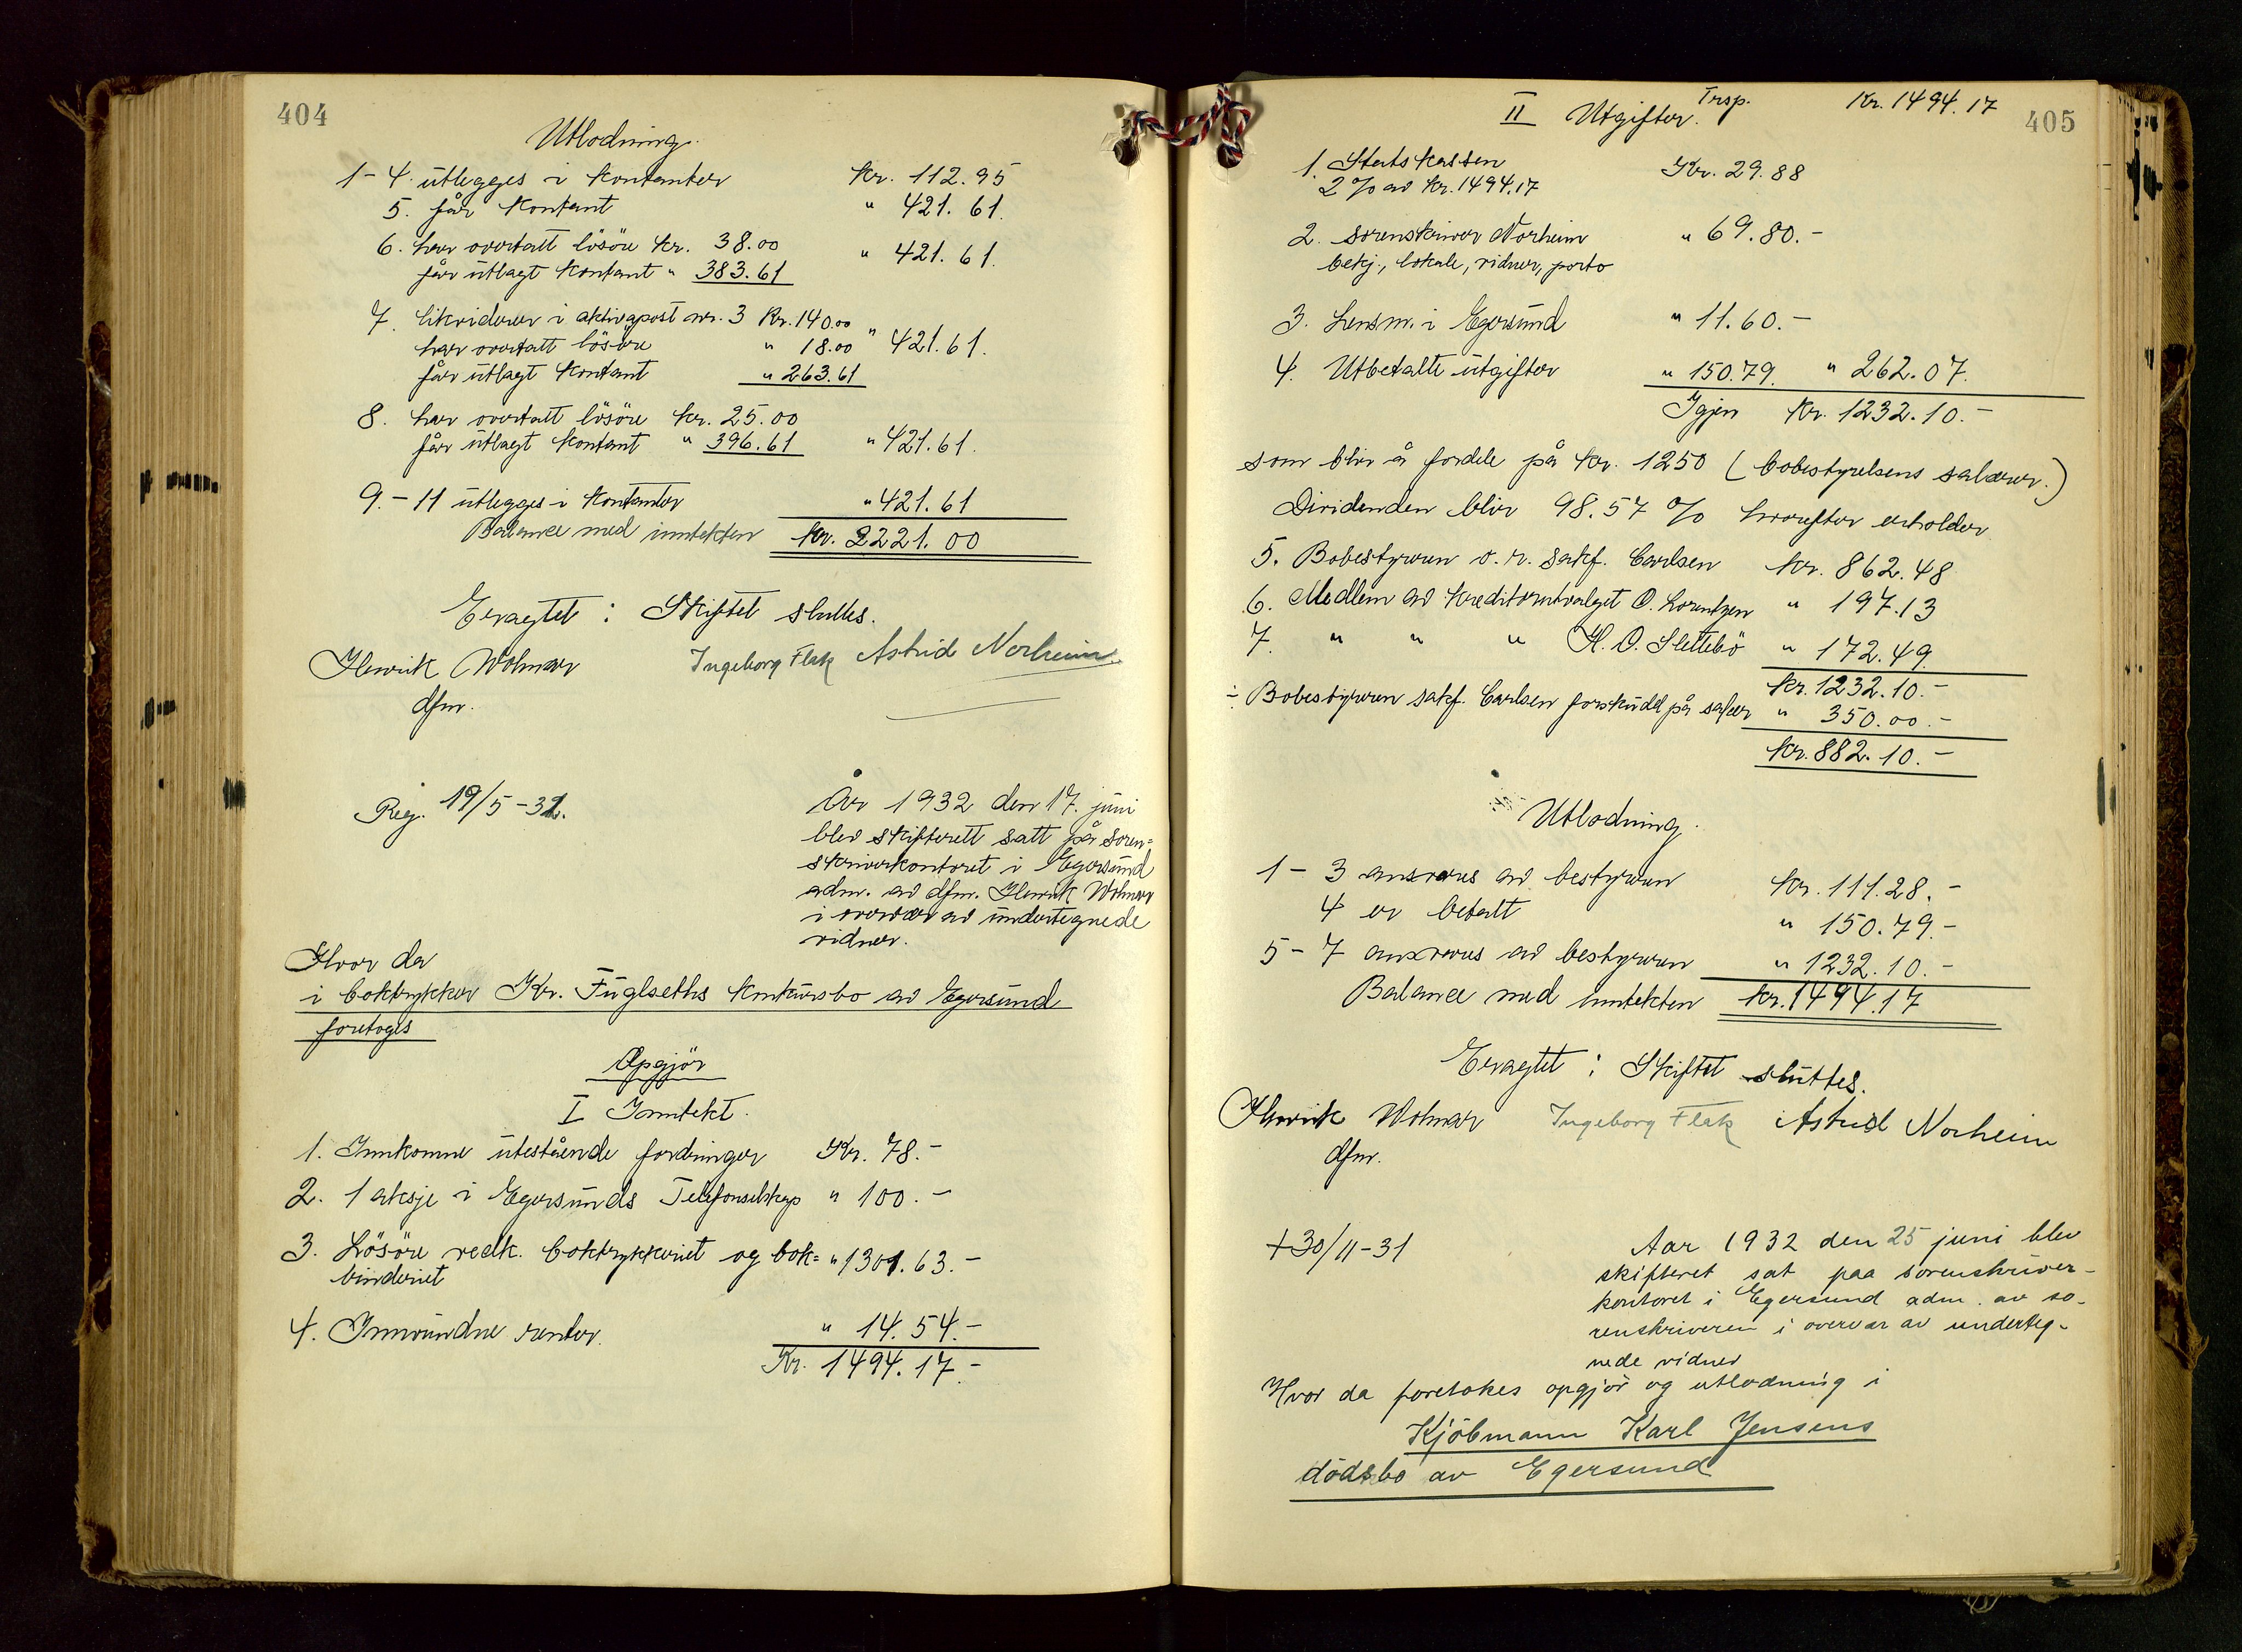 404
Utlodning.
1-4 utlegges i kontanter Kr. 112.95
5. får kontant " 421.61.
6. har overtatt lösöre kr. 38.00
får utlagt kontant " 383.61 " 421.61.
7. likviderer i aktivapost nr. 3 Kr. 140.00
har overtatt lösöre " 18.00 " 421.61.
får utlagt kontant " 263.61
8. har overtatt lösöre kr. 25.00
får utlagt kontant " 396.61 " 421.61.
9.-11 utlegges i kontanter " 421.61
Balance med inntekten kr. 2221.00
Eragtet: Skiftet sluttes.
Henrik Wolmar Ingeborg Flak Astrid Norheim
dfm.
Reg. 19/5-31.
År 1932 den 17. juni
blev skifterett satt på soren=
skriverkontoret i Egersund
adm. av dfm. Henrik Wolmar
i overvær av undertegnede
vidner.
Hvor da
i boktrykker Kr. Fuglseths konkursbo av Egersund
foretoges
Opgjör
I Inntekt.
1. Innkomne utestående fordringer Kr. 78.-
2. 1 aksje i Egersunds Telefonselskap " 100.-
3. Lösöre vedk. boktrykkeriet og bok= " 1301.63.-
binderiet
4. Innvundne renter. " 14.54.-
Kr. 1494.17.-
405
Trsp. Kr. 1494.17
II Utgifter.
1. Statskassen Kr. 29.88
2 % av kr. 1494.17
2. sorenskriver Norheim " 69.80.-
bekj., lokale, vidner, porto
3. Lensm. i Egersund " 11.60.-
4. Utbetalte utgifter " 150.79. " 262.07.
Igjen kr. 1232.10.-
som blir å fordele på kr. 1250 (bobestyrelsens salærer.)
Dividenden blir 98.57 % hvorefter erholder
5. Bobestyreren o.r. sakf. Carlsen kr. 862.48
6. Medlem av kreditorutvalget O. Lorentzen " 197.13
7. " " " H. O. Slettebö " 172.49
kr. 1232.10.-
÷ Bobestyreren sakf. Carlsen forskudd på salær " 350.00.-
kr. 882.10.-
Utlodning.
1-3 ansvares av bestyreren kr. 111.28.-
4 er betalt " 150.79.-
5-7 ansvares av bestyreren " 1232.10.-
Balance med inntekten kr. 1494.17
Eragtet: Skiftet sluttes.
Henrik Wolmar Ingeborg Flak Astrid Norheim
dfm.
+30/11-31
Aar 1932 den 25 juni blev
skifteret sat paa sorenskriver-
kontoret i Egersund adm. av so-
renskriveren i overvær av underteg-
nede vidner
Hvor da foretokes opgjör og utlodning i
Kjöbmann Karl Jensens
dödsbo av Egersund